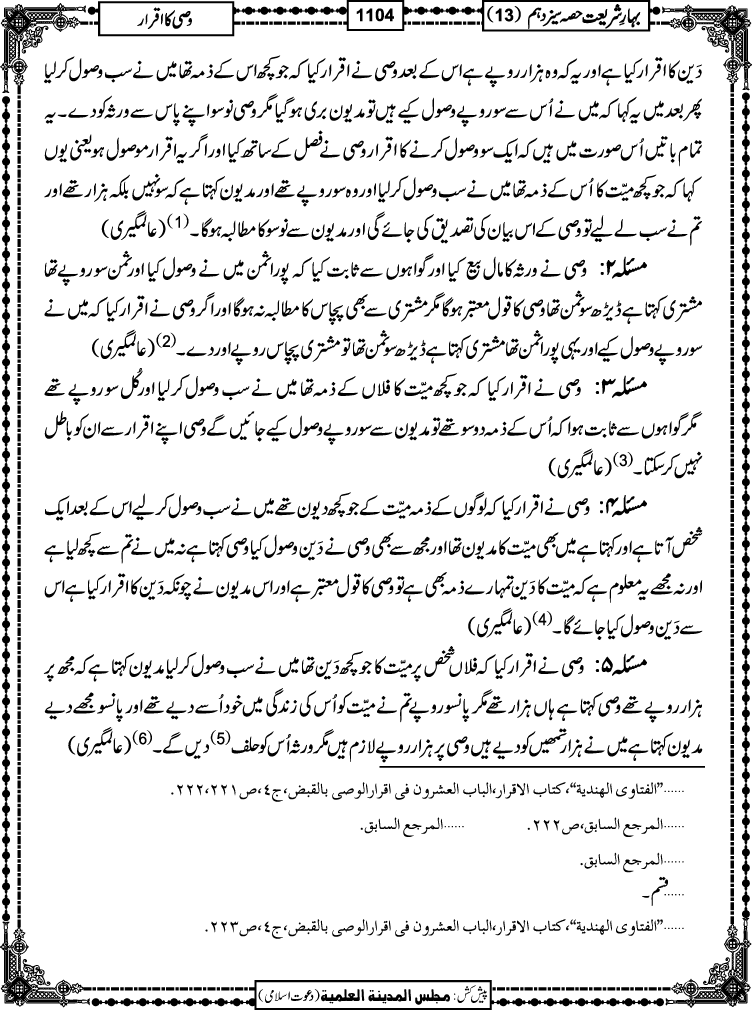 بہارِ شریعت حصہ سیزدہم (13)
1104
وصی کا اقرار
دَین کا اقرار کیا ہے اور یہ کہ وہ ہزار روپے ہے اس کے بعد وصی نے اقرار کیا کہ جو کچھ اس کے ذمہ تھا میں نے سب وصول کرلیا
پھر بعد میں یہ کہا کہ میں نے اُس سے سو روپے وصول کیے ہیں تو مدیون بری ہوگیا مگر وصی نو سو اپنے پاس سے ورثہ کو دے۔ یہ
تمام باتیں اُس صورت میں ہیں کہ ایک سو وصول کرنے کا اقرار وصی نے فصل کے ساتھ کیا اور اگر یہ اقرار موصول ہو یعنی یوں
کہا کہ جو کچھ میّت کا اُس کے ذمہ تھا میں نے سب وصول کرلیا اور وہ سو روپے تھے اور مدیون کہتا ہے کہ سو نہیں بلکہ ہزار تھے اور
تم نے سب لے لیے تو وصی کے اس بیان کی تصدیق کی جائے گی اور مدیون سے نو سو کا مطالبہ ہوگا۔(1) (عالمگیری)
مسئلہ ۲: وصی نے ورثہ کا مال بیع کیا اور گواہوں سے ثابت کیا کہ پورا ثمن میں نے وصول کیا اور ثمن سو روپے تھا
مشتری کہتا ہے ڈیڑھ سو ثمن تھا وصی کا قول معتبر ہوگا مگر مشتری سے بھی پچاس کا مطالبہ نہ ہوگا اور اگر وصی نے اقرار کیا کہ میں نے
سو روپے وصول کیے اور یہی پورا ثمن تھا مشتری کہتا ہے ڈیڑھ سو ثمن تھا تو مشتری پچاس روپے اور دے۔(2) (عالمگیری)
مسئلہ ۳: وصی نے اقرار کیا کہ جو کچھ میّت کا فلاں کے ذمہ تھا میں نے سب وصول کرلیا اور کُل سو روپے تھے
مگر گواہوں سے ثابت ہوا کہ اُس کے ذمہ دو سو تھے تو مدیون سے سو روپے وصول کیے جائیں گے وصی اپنے اقرار سے ان کو باطل
نہیں کرسکتا۔(3) (عالمگیری)
مسئلہ ۴: وصی نے اقرار کیا کہ لوگوں کے ذمہ میّت کے جو کچھ دیون تھے میں نے سب وصول کرلیے اس کے بعد ایک
شخص آتا ہے اور کہتا ہے میں بھی میّت کا مدیون تھا اور مجھ سے بھی وصی نے دَین وصول کیا وصی کہتا ہے نہ میں نے تم سے کچھ لیا ہے
اور نہ مجھے یہ معلوم ہے کہ میّت کا دَین تمہارے ذمہ بھی ہے تو وصی کا قول معتبر ہے اور اس مدیون نے چونکہ دَین کا اقرار کیا ہے اس
سے دَین وصول کیا جائے گا۔(4) (عالمگیری)
مسئلہ ۵: وصی نے اقرار کیا کہ فلاں شخص پر میّت کا جو کچھ دَین تھا میں نے سب وصول کرلیا مدیون کہتا ہے کہ مجھ پر
ہزار روپے تھے وصی کہتا ہے ہاں ہزار تھے مگر پانسو روپے تم نے میّت کو اُس کی زندگی میں خود اُسے دیے تھے اور پانسو مجھے دیے
مدیون کہتا ہے میں نے ہزار تمھیں کو دیے ہیں وصی پر ہزار روپے لازم ہیں مگر ورثہ اُس کو حلف(5) دیں گے۔(6) (عالمگیری)
......"الفتاوی الهندیة"،کتاب الاقرار،الباب العشرون فی اقرار الوصی بالقبض،ج٤،ص٢٢٢،٢٢١.
......المرجع السابق،ص٢٢٢. ......المرجع السابق.
......المرجع السابق.
......قسم۔
......"الفتاوی الهندیة"،کتاب الاقرار،الباب العشرون فی اقرار الوصی بالقبض،ج٤،ص٢٢٣.
پیش کش: مجلس المدینة العلمیة (دعوت اسلامی)